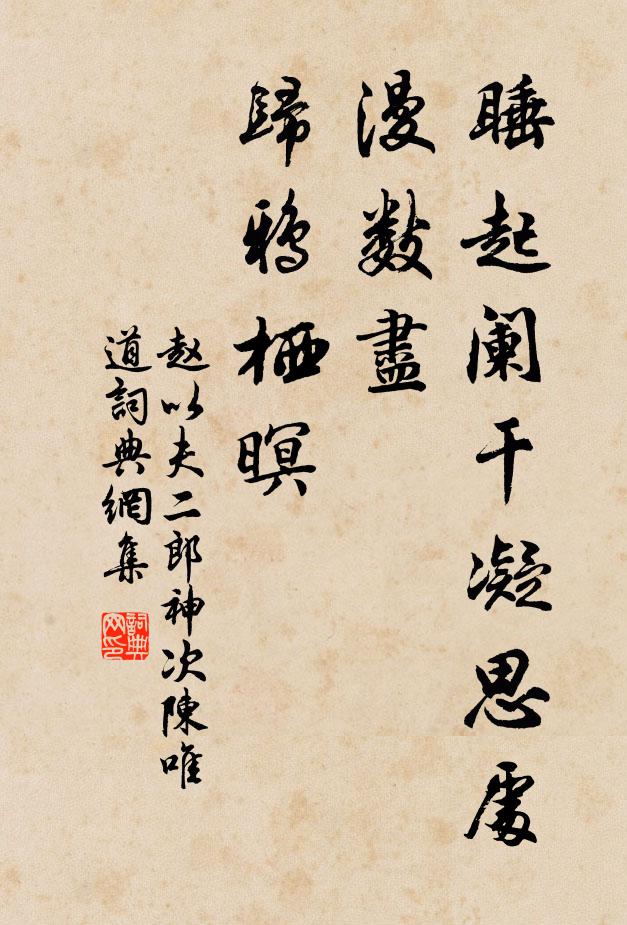 睡起阑干凝思處
漫数盡
歸鴉栖暝
赵以夫二郎神次陳唯
道詞典網集
詞典网印